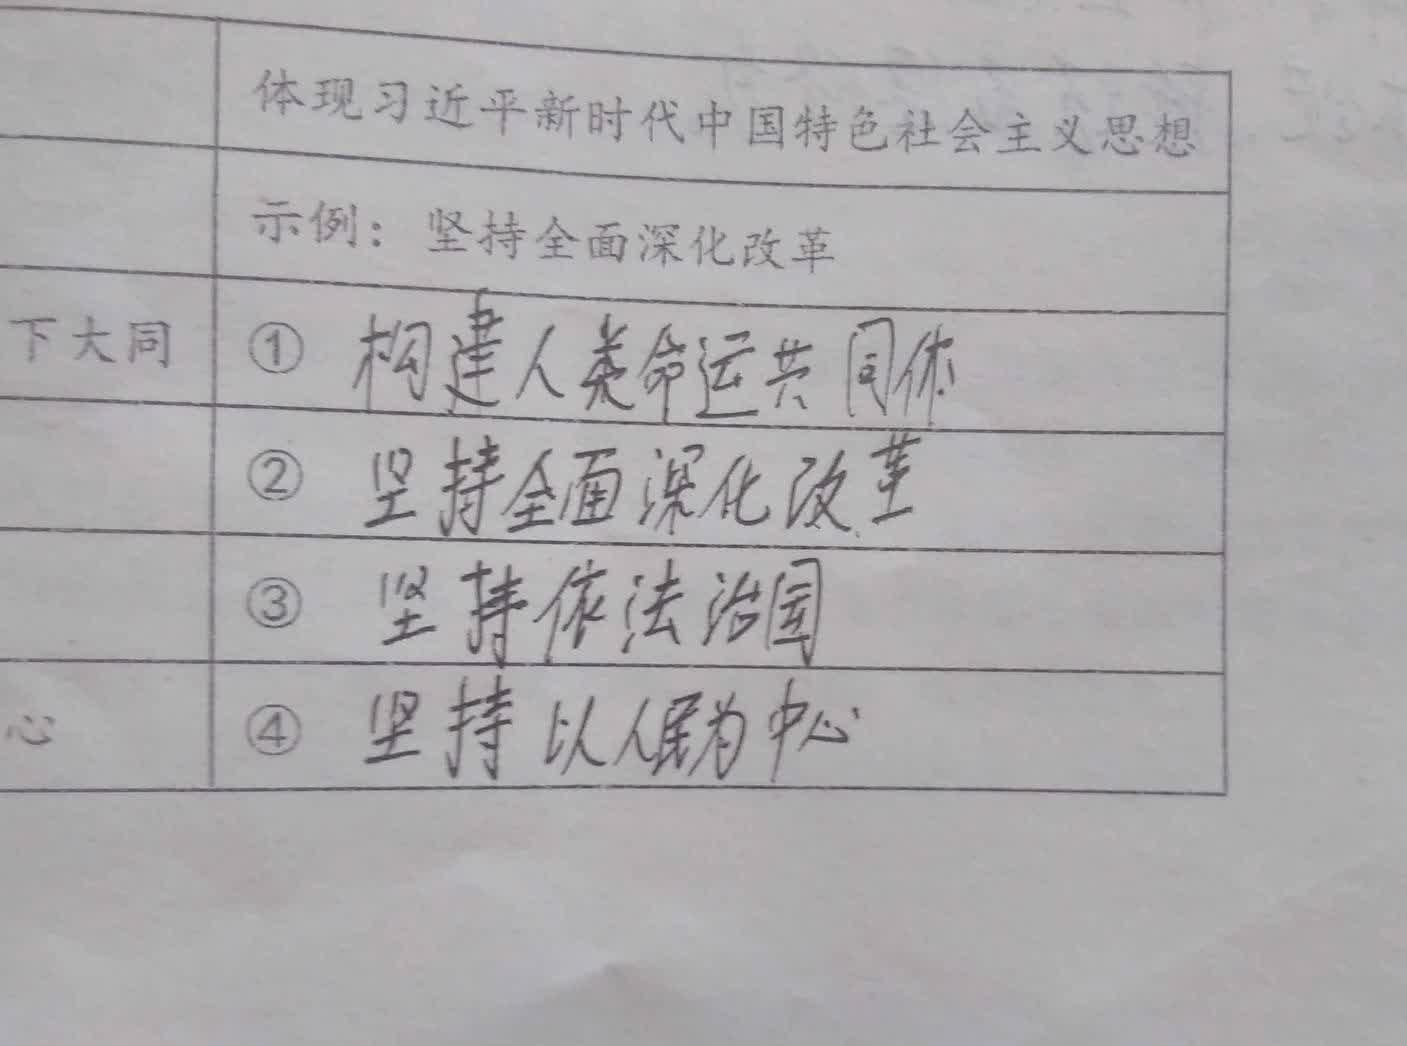 体现习近平新时代中国特色社会主义思想
示例：坚持全面深化改革
下大同 ① 构建人类命运共同体
② 坚持全面深化改革
③ 坚持依法治国
心 ④ 坚持以人民为中心